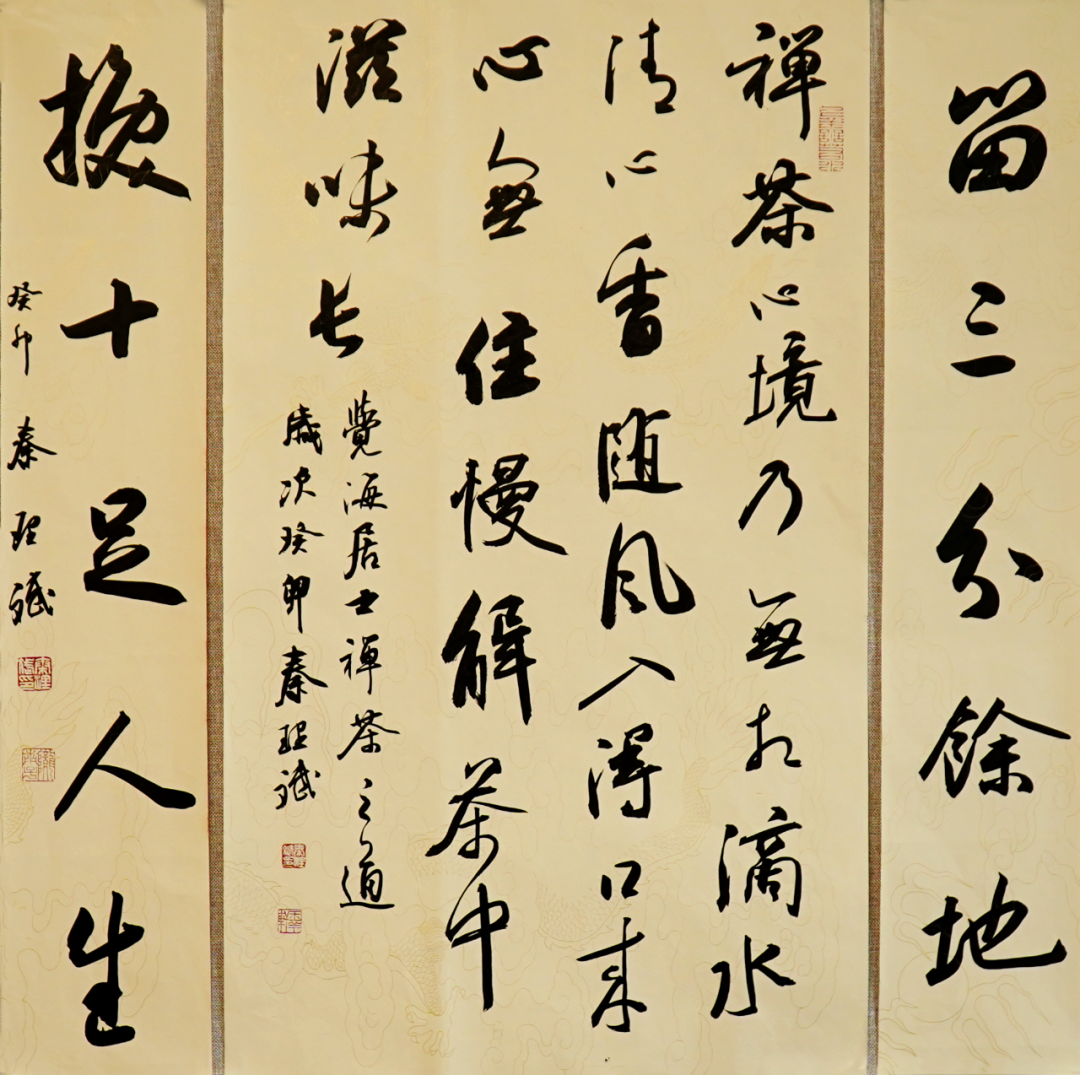 留三分餘地
禪茶心境乃無相滴水
清心香随風入得口来
心無住慢解茶中
滋味长
覺海居士禪茶之道
歲次癸卯秦斌
換十足人生
癸卯秦斌